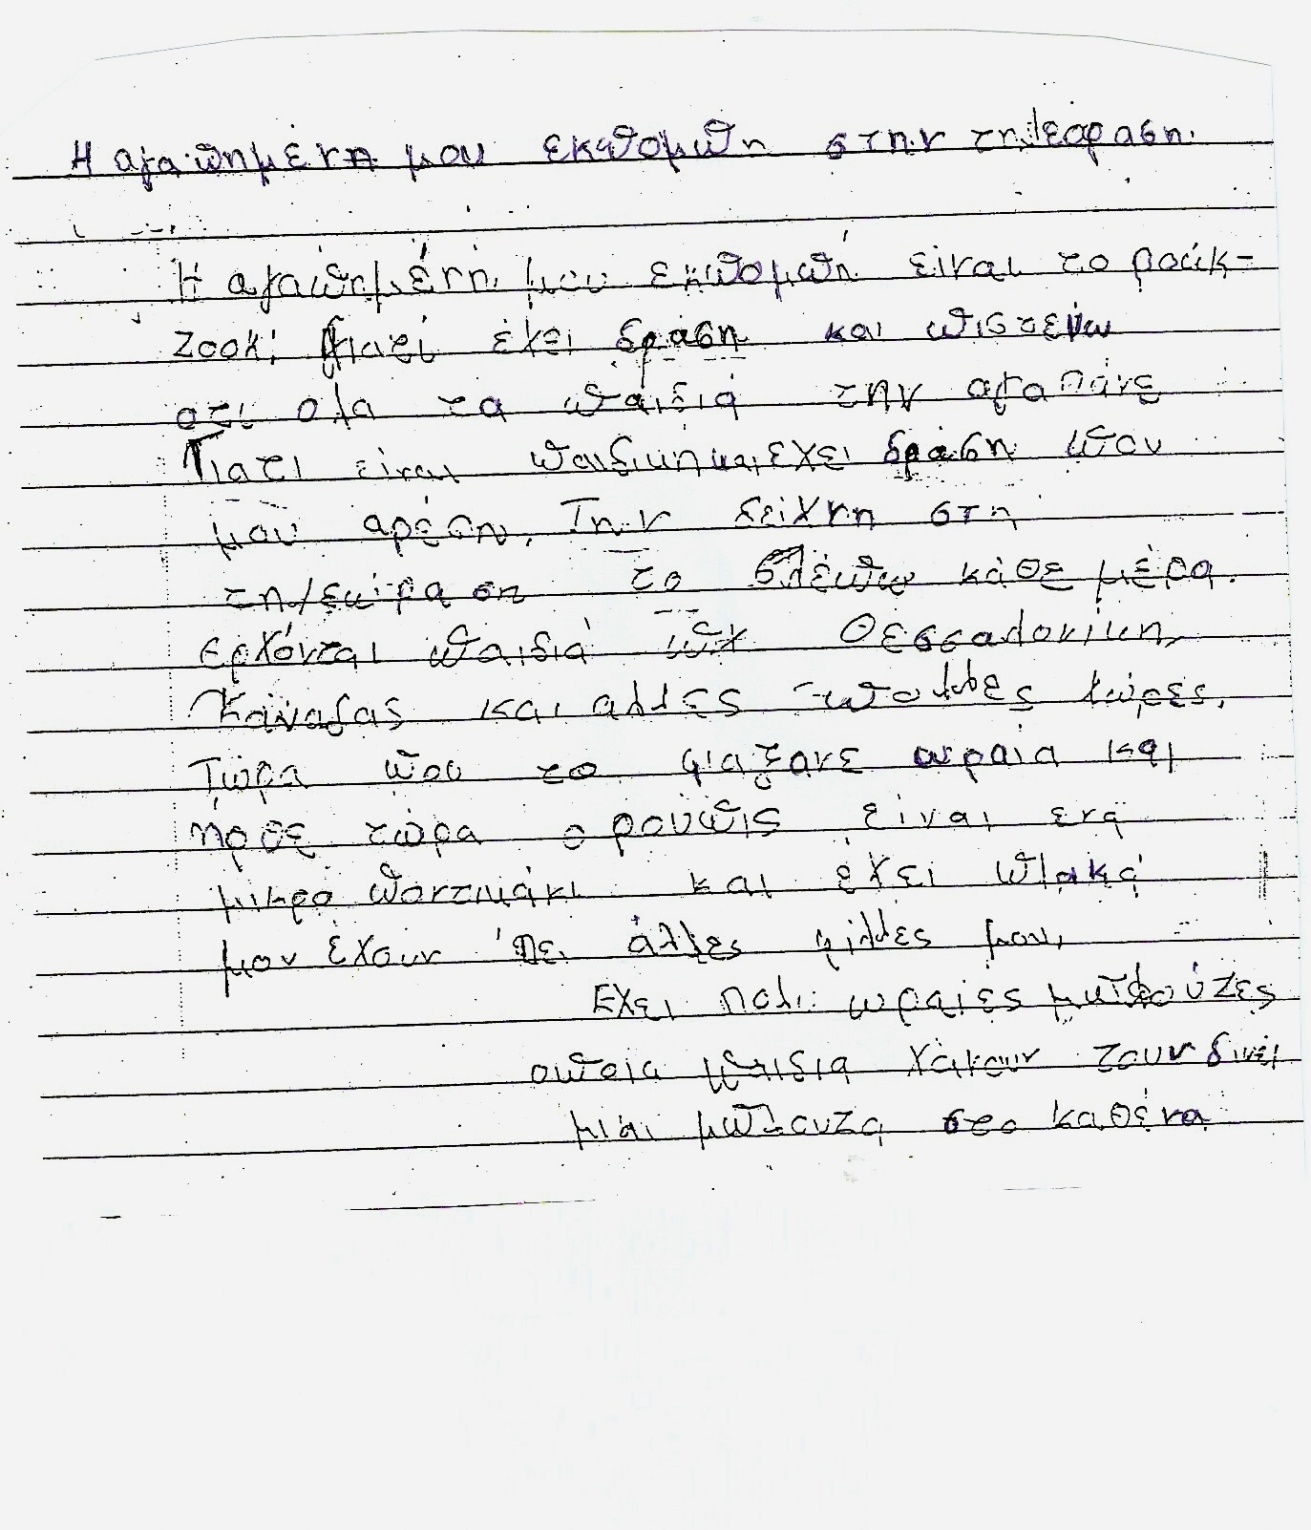 Η αγαπημένη μου εκπομπη στην τηλεόραση.
Η αγαπημένη μου εκπομπή είναι το ρούκ-
ζουκ. Γιατί έχει δράση και πιστεύω
οτι ολα τα παιδιά την αγαπάνε
Γιατι είναι παιδικη και εχει δράση που
μου αρέση. Την δείχνη στη
το βλέπω κάθε μέρα.
ερχόνται παιδιά πχ Θεσσαλονίκη,
Κάναδας και αλλες πολλές χώρες.
Τώρα που το φιαξανε ωραία και
ηρθε τώρα ο ρουπις είναι ενα
μικρο ποντικάκι και έχει πλακά
μου έχουν πει άλλες φίλλες μου,
Εχει πολι ωραιές μπλούζες
οποια παιδια χάνουν τουν δινει
μιαι μπλουζα στο καθένα